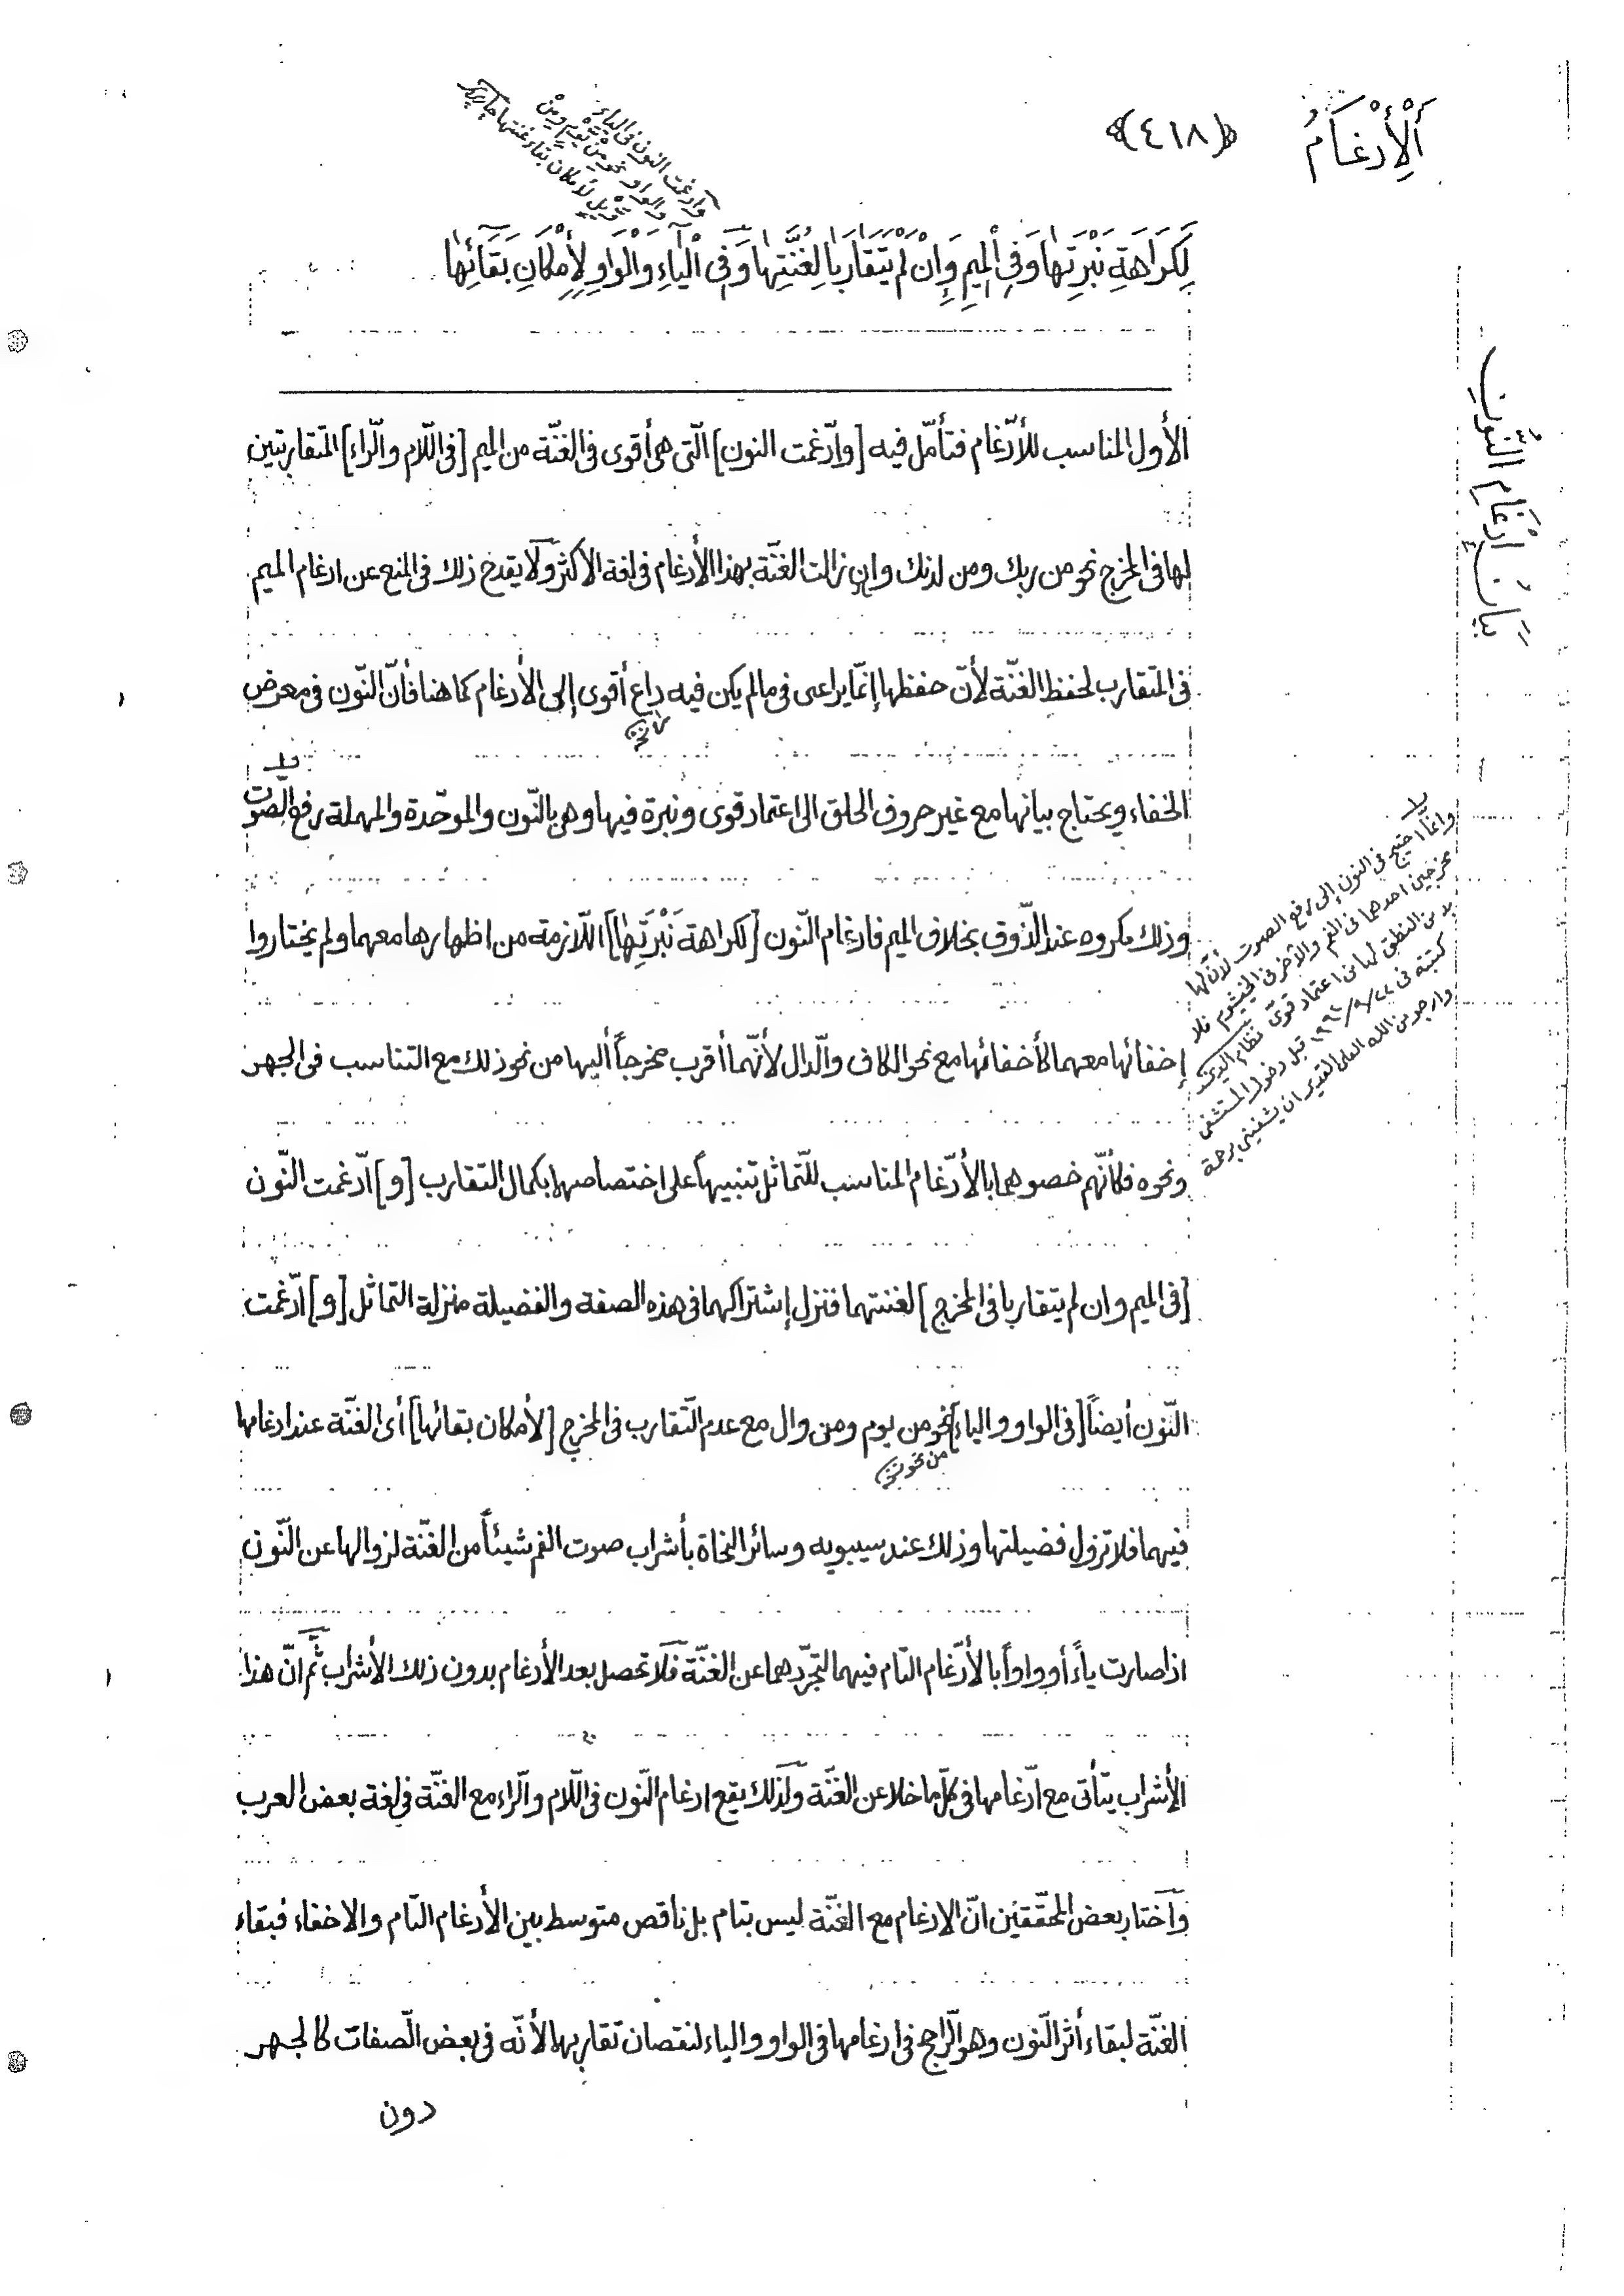 أَلْأِدْغَامُ
﴿٤١٨﴾
وادغمت النون فى الياء
والواو نحو مِنْ يَوْمٍ ومِنْ
لأمكان بقاء غنتها
لِكَرَاهَةِ نَبْرَتِهَا وَفِى الْمِيمِ وَإِنْ لَمْ يَتَقَارَبَا لِغُنَّتِهَا وَفِى الْيَاءِ وَالْوَاوِ لِأِمْكَانِ بَقَائِهَا
بَيَانُ إِدْغَامِ النُّونِ
الأول المناسب للأدّغام فتأمّل فيه [وادّغمت النون] الّتى هى أقوى فى الغنّة من الميم [فى اللّام والرّاء] المتقاربتين
لها فى المخرج نحو من ربك ومن لدنك وان زالت الغنّة بهذا الأدغام فى لغة الاكثر ولا يقدح ذلك فى المنع عن ادغام الميم
فى المتقارب لحفظ الغنّة لأنّ حفظها إنّما يراعى فى مالم يكن فيه داع أقوى إلى الأدغام كما هنا فأنّ النّون فى معرض
الخفاء ويحتاج بيانها مع غير حروف الحلق الى اعتماد قوى ونبرة فيها وهى بالنّون والموحّدة والمهملة رفع الصّوت
وذلك مكروه عند الذّوق بخلاف الميم فادغام النّون [لكراهة نَبْرَتِهَا] اللّازمة من اظهارها معهما ولم يختاروا
إخفائها معهما كأخفائها مع نحو الكاف والدّال لأنّهما أقرب مخرجاً أليها من نحو ذلك مع التناسب فى الجهر
ونحوه فكأنّهم خصوهما بالأدّغام المناسب للتّماثل تنبيهاً على اختصاصهما بكمال التقارب [و] ادّغمت النّون
[فى الميم وان لم يتقاربا فى المخرج] لغنتهما فنزل إشتراكهما فى هذه الصفة والفضيلة منزلة التماثل [و] ادّغمت
النّون أيضاً [فى الواو والياء] نحو من يوم ومن وال مع عدم التّقارب فى المخرج [لأمكان بقائها] أى الغنّة عند ادغامها
فيهما فلا تزول فضيلتها وذلك عند سيبويه وسائر النحاة بأشراب صوت الفم شيئاً من الغنّة لزوالها عن النّون
اذا صارت ياءً أو واواً بالأدّغام التام فيهما لتجرّدهما عن الغنّة فلا تحصل بعد الأدغام بدون ذلك الأشراب ثمّ انّ هذا
الأشراب يتّأتى مع ادّغامها فى كلّ ما خلا عن الغنّة ولذلك يقع ادغام النّون فى اللّام والرّاء مع الغنّة فى لغة بعض العرب
واختار بعض المحقّقين انّ الادغام مع الغنّة ليس بتام بل ناقص متوسط بين الأدغام التام والاخفاء فبقاء
الغنّة لبقاء أثر النّون وهو الرّاجح فى ادغامها فى الواو والياء لنقصان تقاربها لأنّه فى بعض الصّفات كالجهر
دون
وانّما احتيج فى النون إلى رفع الصوت لأنّ لها
مخرجين احدهما فى الفم والأخر فى الخيشوم فلا
بد من النطق لها من اعتماد قوىّ نظام الدين
كتبته فى ١٩٩٢/٩/٢٢ قبل دخول المستشفى
وارجو من الله العلى القدير ان يشفينى برحمة